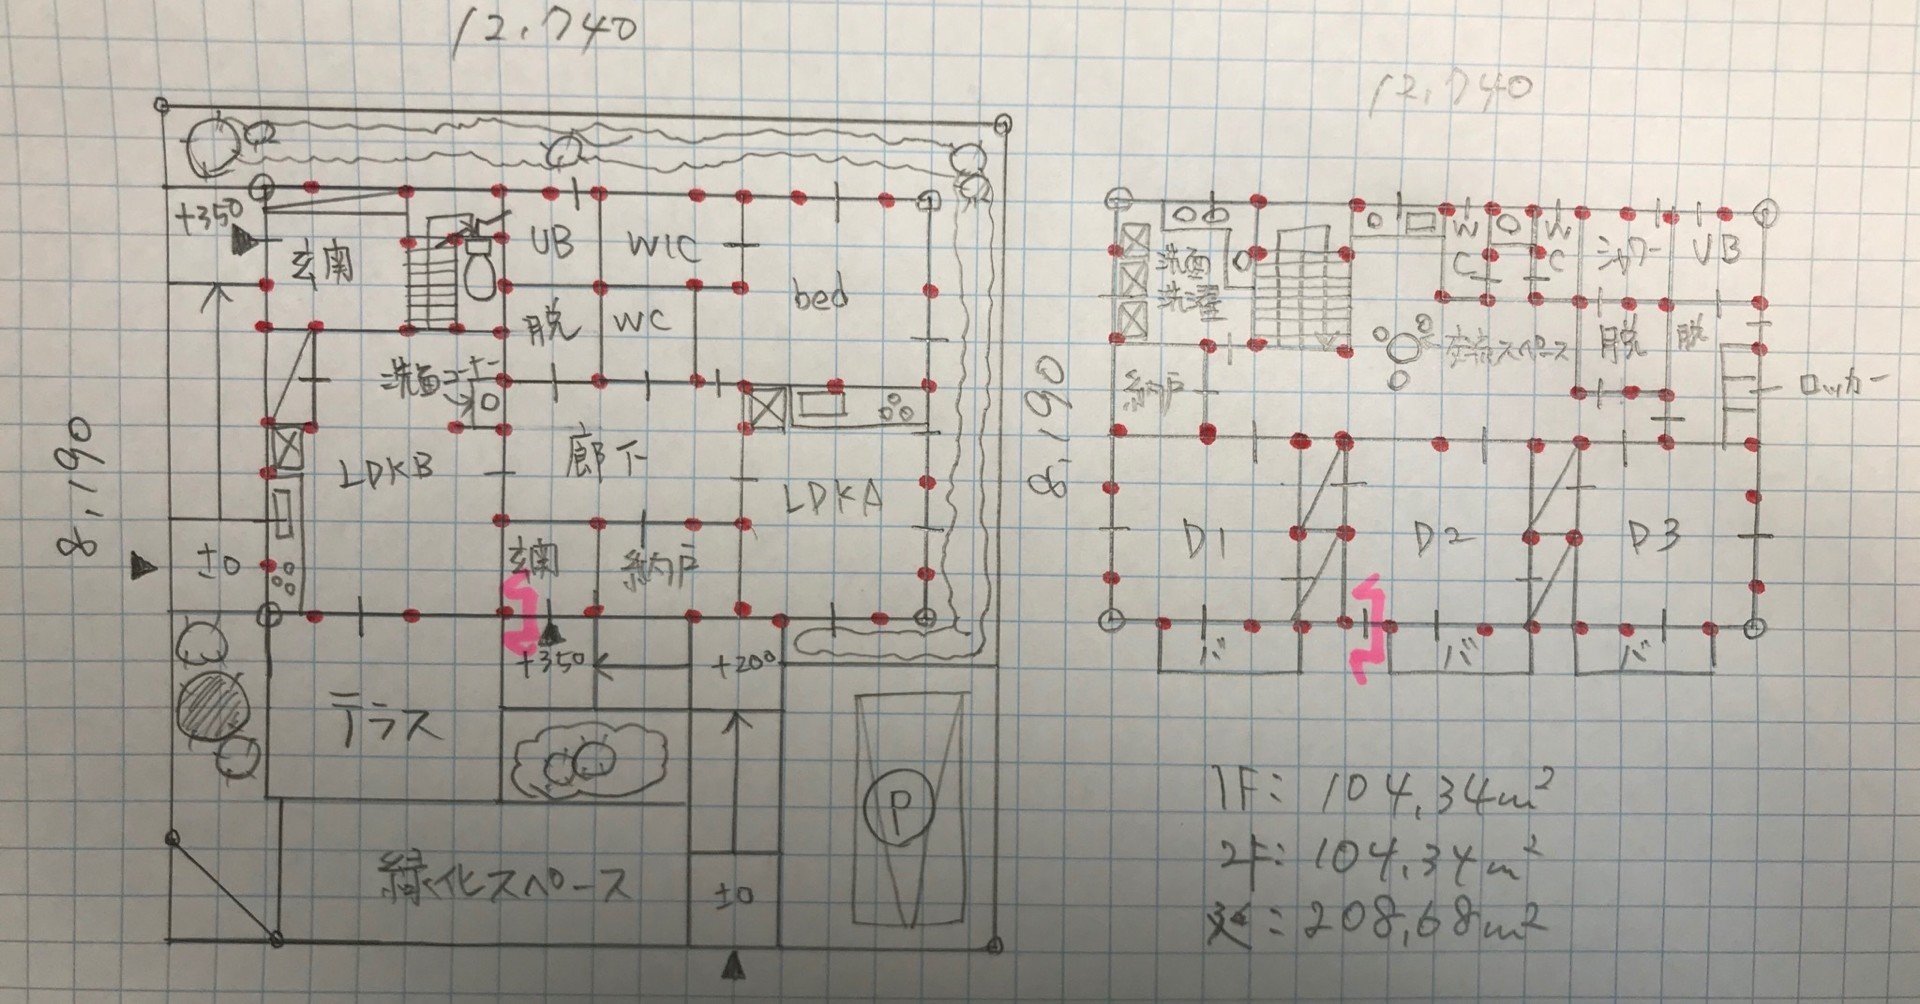 12.740
12.740
+350
玄関
UB
WIC
bed
脱
WC
洗面
LDKB
廊下
LDKA
8.190
±0
玄関
納戸
+350
+200
テラス
P
緑化スペース
±0
洗面
洗濯
WC
WC
シャワー
UB
脱
脱
ロッカー
納戸
8.190
D1
D2
D3
バ
バ
バ
1F: 104.34m²
2F: 104.34m²
延: 208.68m²